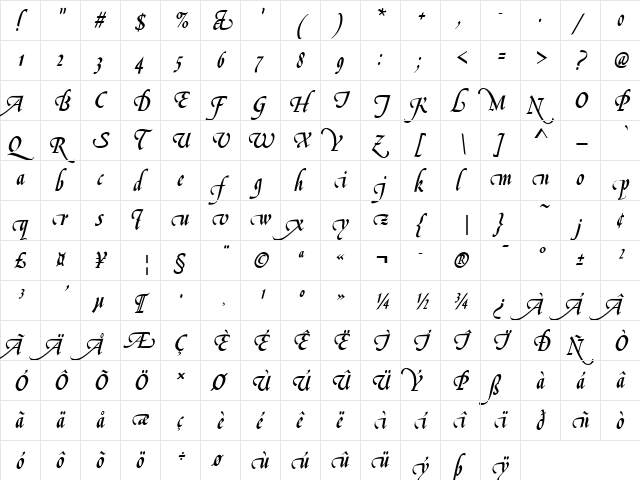 ! " # $ % & ' ( ) * + , - . / 0
1 2 3 4 5 6 7 8 9 : ; < = > ? @
A B C D E F G H I J K L M N O P
Q R S T U V W X Y Z [ \ ] ^ _ `
a b c d e f g h i j k l m n o p
q r s t u v w x y z { | } ~ ¡ ¢
£ ¤ ¥ ¦ § ¨ © ª « ¬ - ® ¯ ° ± ²
³ ´ µ ¶ · ¸ ¹ º » ¼ ½ ¾ ¿ À Á Â
Ã Ä Å Æ Ç È É Ê Ë Ì Í Î Ï Ð Ñ Ò
Ó Ô Õ Ö × Ø Ù Ú Û Ü Ý Þ ß à á â
ã ä å æ ç è é ê ë ì í î ï ð ñ ò
ó ô õ ö ÷ ø ù ú û ü ý þ ÿ